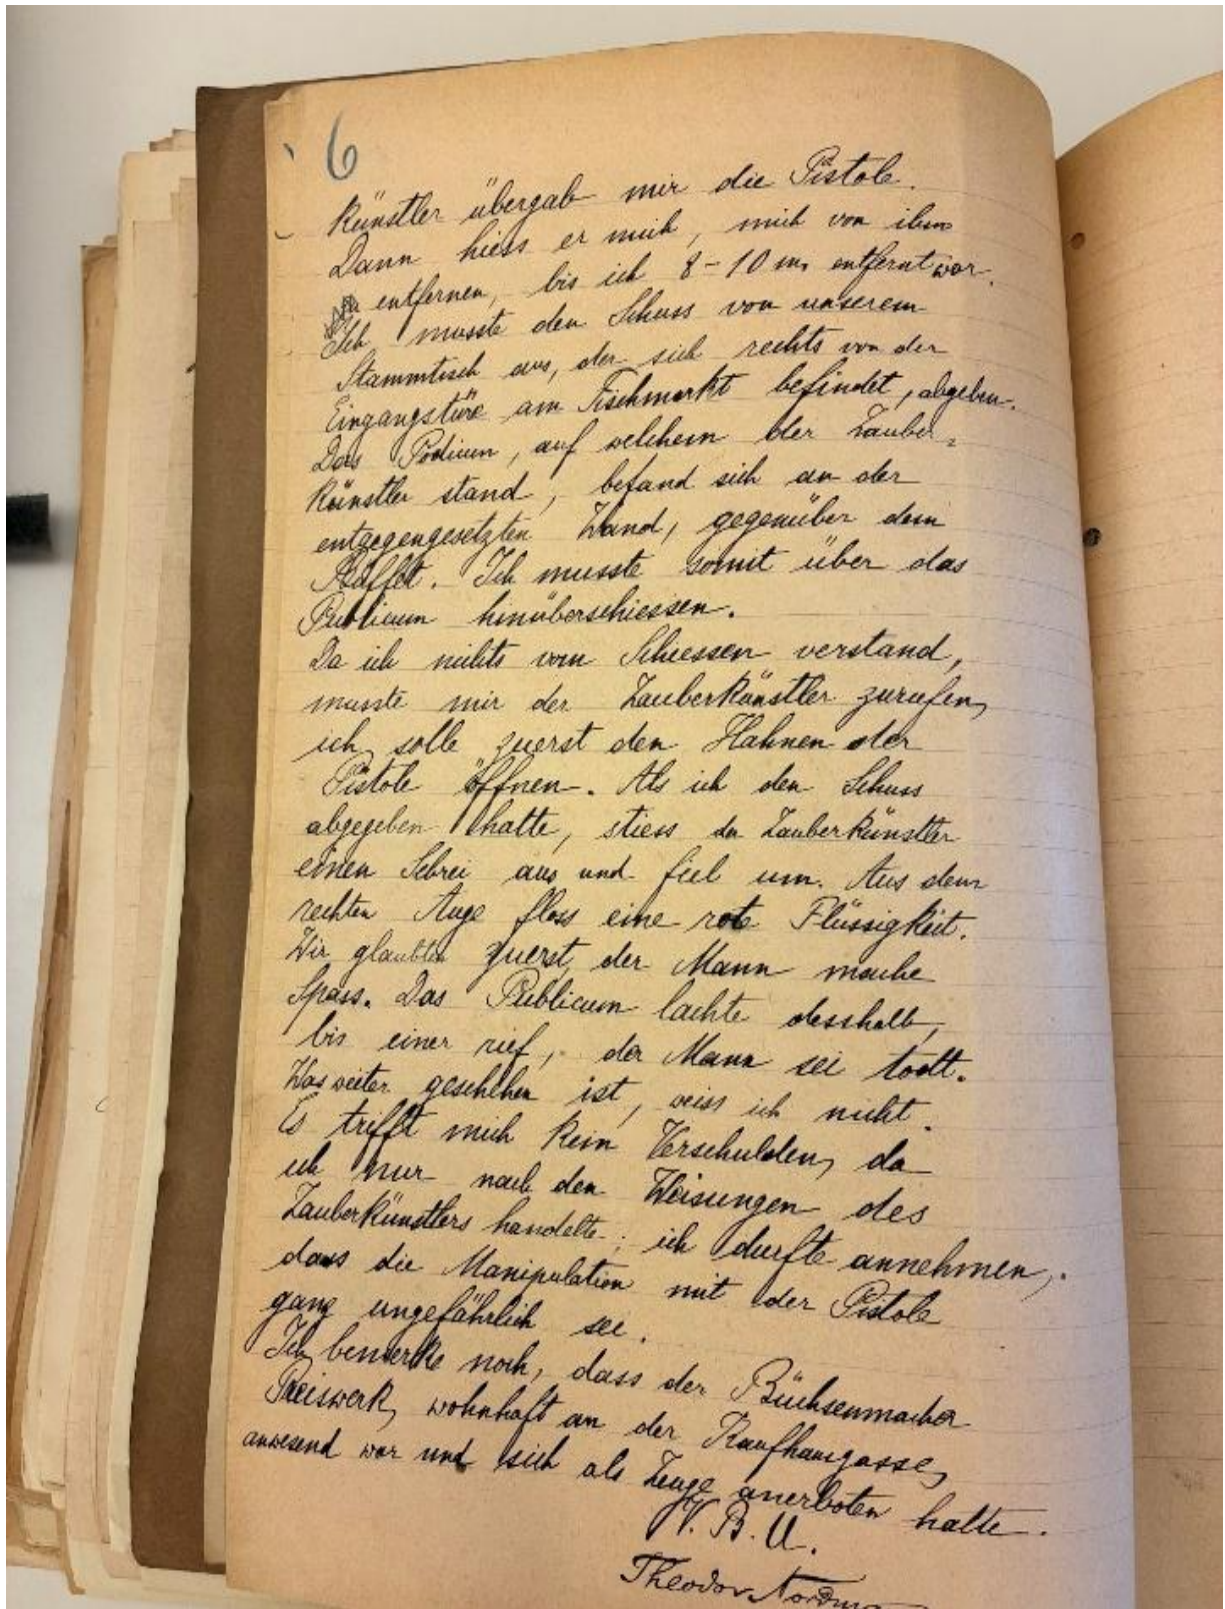 6
Künstler übergab mir die Pistole.
Dann hiess er mich, mich von ihm
zu entfernen, bis ich 8-10 m entfernt war.
Ich musste den Schuss von unserem
Stammtisch aus, der sich rechts von der
Eingangstüre am Fischmarkt befindet, abgeben.
Das Podium, auf welchem der Zauber=
künstler stand, befand sich an der
entgegengesetzten Wand, gegenüber dem
Buffet. Ich musste somit über das
Publicum hinüberschiessen.
Da ich nichts vom Schiessen verstand,
musste mir der Zauberkünstler zurufen,
ich solle zuerst den Hahnen der
Pistole öffnen. Als ich den Schuss
abgegeben hatte, stiess der Zauberkünstler
einen Schrei aus und fiel um. Aus dem
rechten Auge floss eine rote Flüssigkeit.
Wir glaubten zuerst, der Mann mache
Spass. Das Publicum lachte desshalb,
bis einer rief, der Mann sei todt.
Was weiter geschehen ist, weiss ich nicht.
Es trifft mich kein Verschulden, da
ich nur nach den Weisungen des
Zauberkünstlers handelte; ich durfte annehmen,
dass die Manipulation mit der Pistole
ganz ungefährlich sei.
Ich bemerke noch, dass der Büchsenmacher
Preiswerk, wohnhaft an der Kaufhausgasse,
anwesend war und sich als Zeuge anerboten hatte.
V. B. U.
Theodor